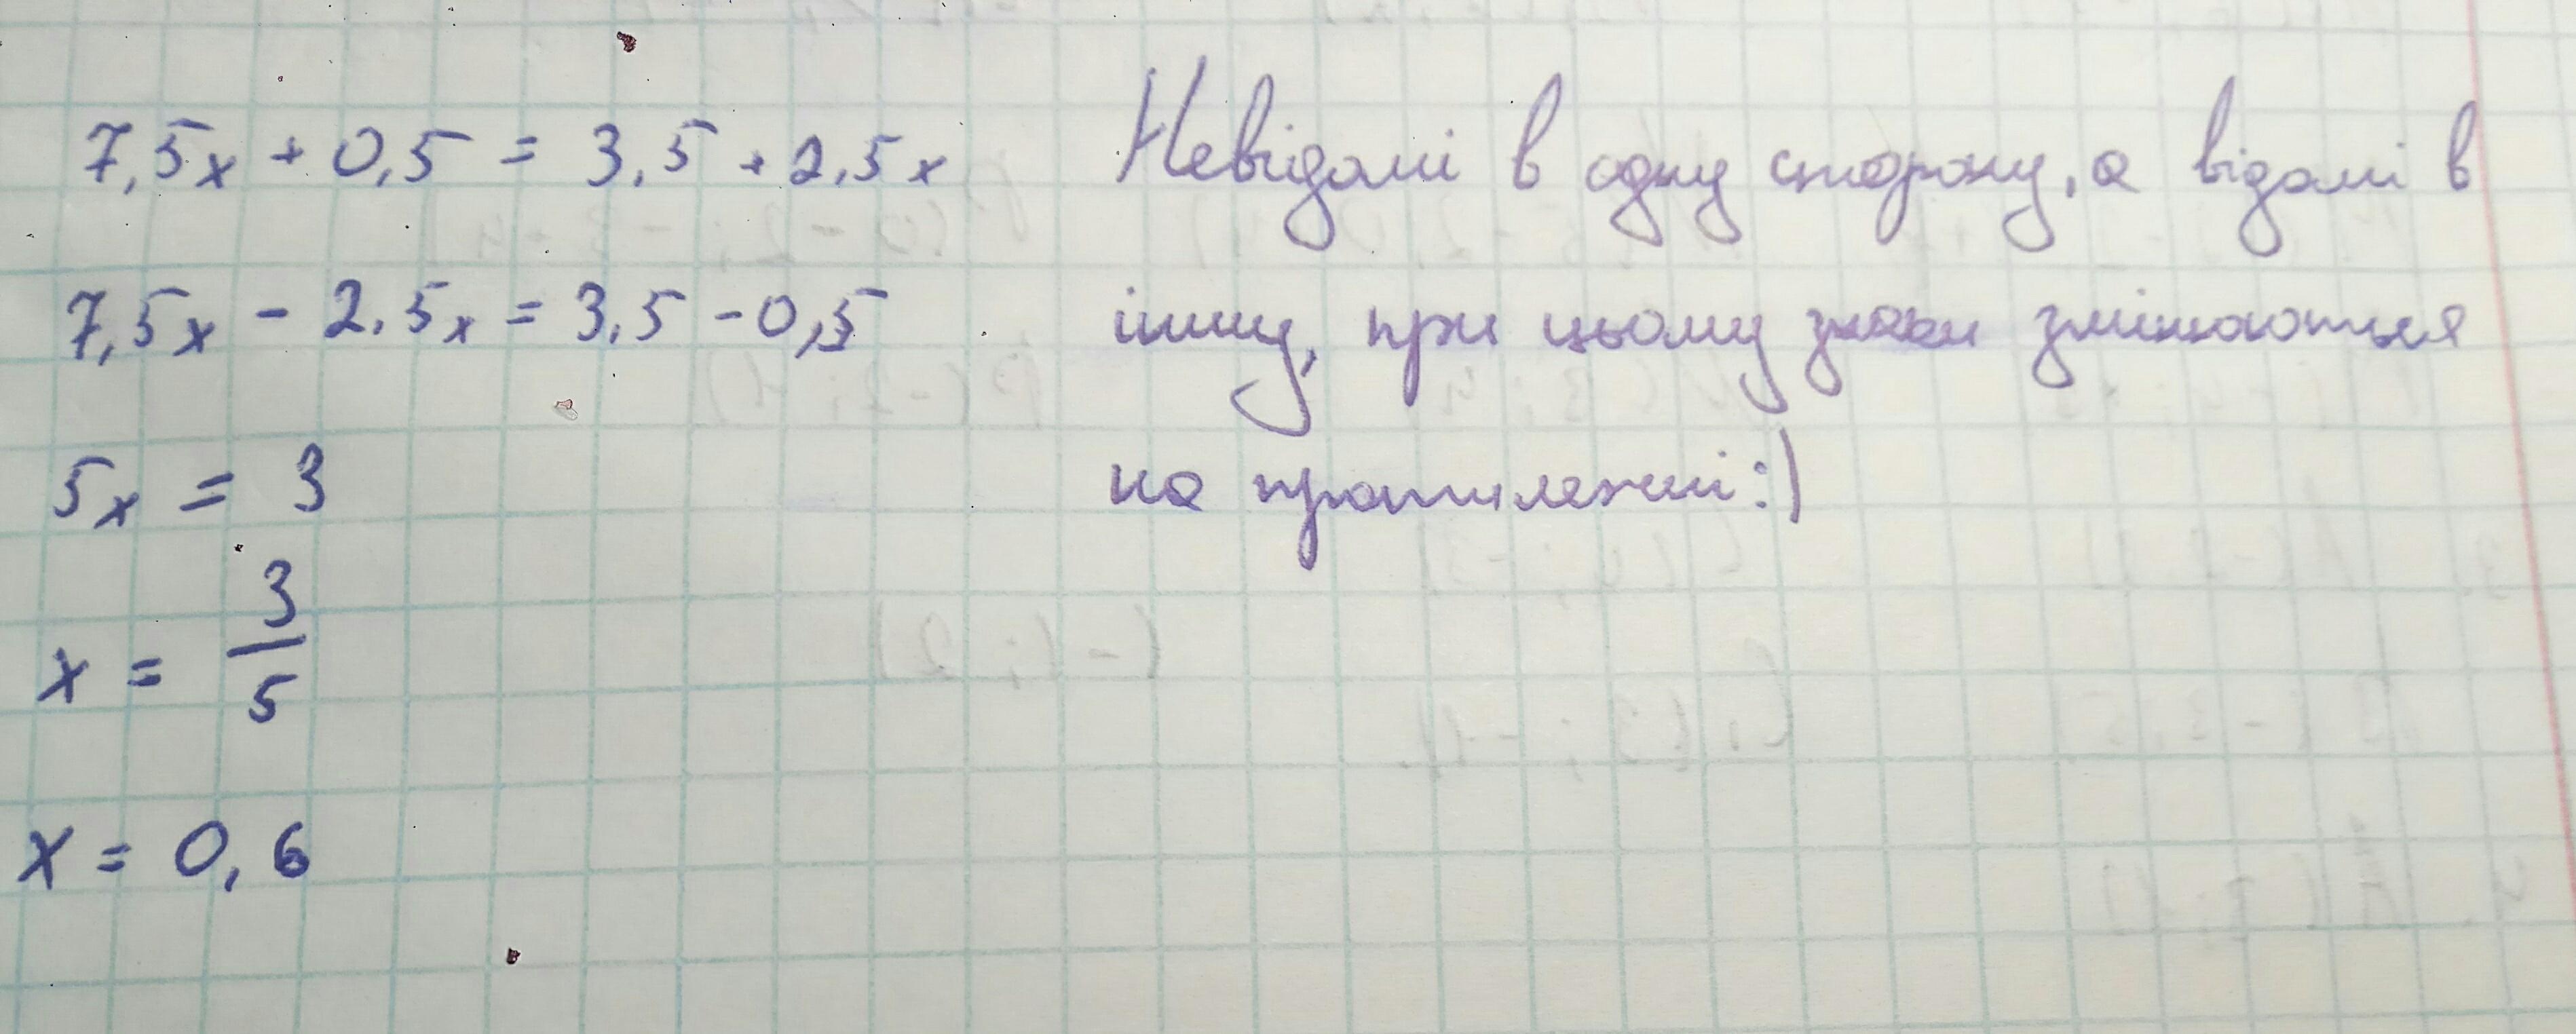 7,5x + 0,5 = 3,5 + 2,5x
7,5x - 2,5x = 3,5 - 0,5
5x = 3
x = 3/5
x = 0,6
Невідомі в одну сторону, а відомі в
іншу, при цьому знаки змінюються
на протилежні :)